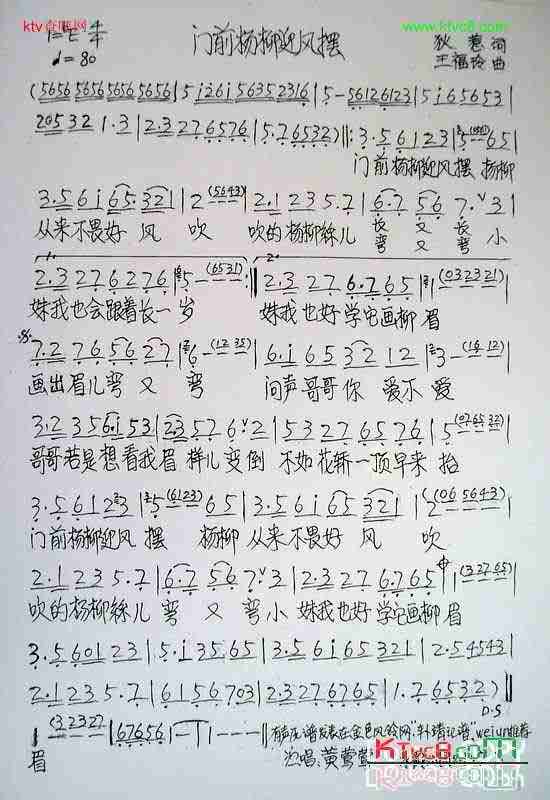 ktv查歌网
www.ktvc8.com
1=E 4/4
♩=80
门前杨柳迎风摆
狄葱词
王福玲曲
(5656 5656 5656 5656 | 5 i 2 6 i 5 6 3 5 2 3 1 6 | 5 - 5612 6123 | 5 i 6 5 6 5 3 |
2 0 5 3 2 1·3 | 2·3 2 7 6 5 7 6 | 5·7 6532) ‖: 3·5 6 1 2 3 | 5 6 5 |
门前杨柳迎风摆 杨柳
3·5 6 i 6 5·3 2 1 | 2 (5643) | 2·1 2 3 5·7 | 6·7 5 6 7· 3 |
从来不畏好风吹 吹的杨柳丝儿长又长小
弯又弯
2·3 2 7 6 2 7 6 | 5 - (6531) :‖ 2·3 2 7 6·7 6 5 | 1 (032321) |
妹我也会跟着长一岁 妹我也好学它画柳眉
7·2 7 6 5 6 2 7 | 6 - (12 35) | 6·i 6 5 3 2 1 2 | 3 - (16 12) |
画出眉儿弯又弯 问声哥哥你爱不爱
3·2 3 5 6·i 5 3 | 2·3 5 7 6 2 | 5 3 2 7 6 5 7 6 | 5 (0765 32) |
哥哥若是想看我眉样儿变倒 不如花轿一顶早来抬
3·5 6 1 2 3 | 5 (6123) 6 5 | 3·5 6 i 6 5 3 2 1 | 2 (06 5643) |
门前杨柳迎风摆 杨柳从来不畏好风吹
2·1 2 3 5·7 | 6·7 5 6 7· 3 | 2·3 2 7 6·7 6 5 | 1 (3 2765) |
吹的杨柳丝儿弯又弯小妹我也好学它画柳眉
3·5 6 0 1 2 3 | 5·i 3 5 6 5 | 3·5 6 i 6 5 3 2 1 | 2·5 4 5 4 3 |
2·1 2 3 5·7 | 6 1 5 6 7 0 3 | 2·3 2 7 6 7 6 5 | 1·7 6 5 3 2) ‖
D.S
1 (3 2 3 2 7 | 6 7 6 5 6 | 1 - 1 - - - ‖
眉
演唱:黄莺莺
KTVc8.com